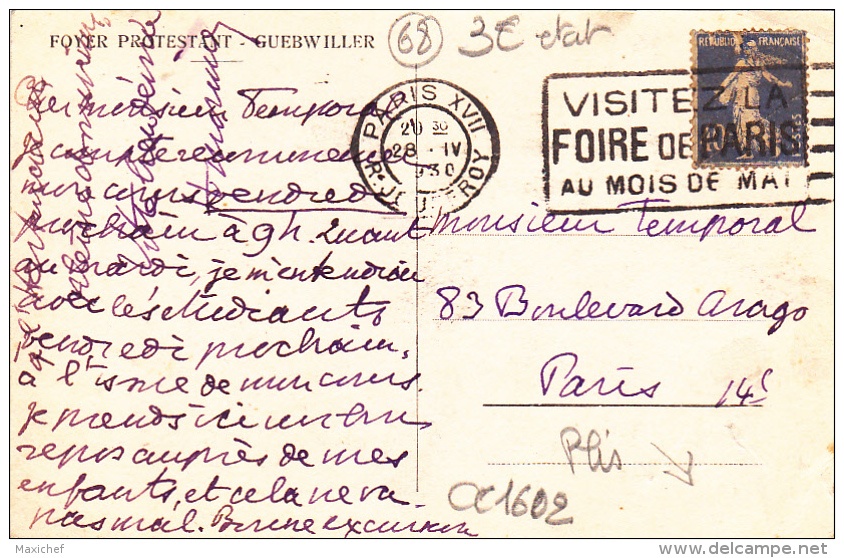 FOYER PROTESTANT - GUEBWILLER
68
3€ etat
PARIS XVII
20 30
28 · IV
930
R. JOUFFROY
VISITEZ LA
FOIRE DE PARIS
AU MOIS DE MAI
REPUBLIQUE FRANÇAISE
Cher monsieur Temporal
Je
mon cours vendredi
prochain à 9h. Quant
au mardi, je m'entendrai
avec les étudiants
vendredi prochain,
à l'issue de mon cours.
Je prends ici un bon
repos auprès de mes
enfants, et cela ne va
pas mal. Bonne excursion
Monsieur Temporal
83 Boulevard Arago
Paris 14e
Plis
CC1602
Maxichef
http://www.delcampe.net